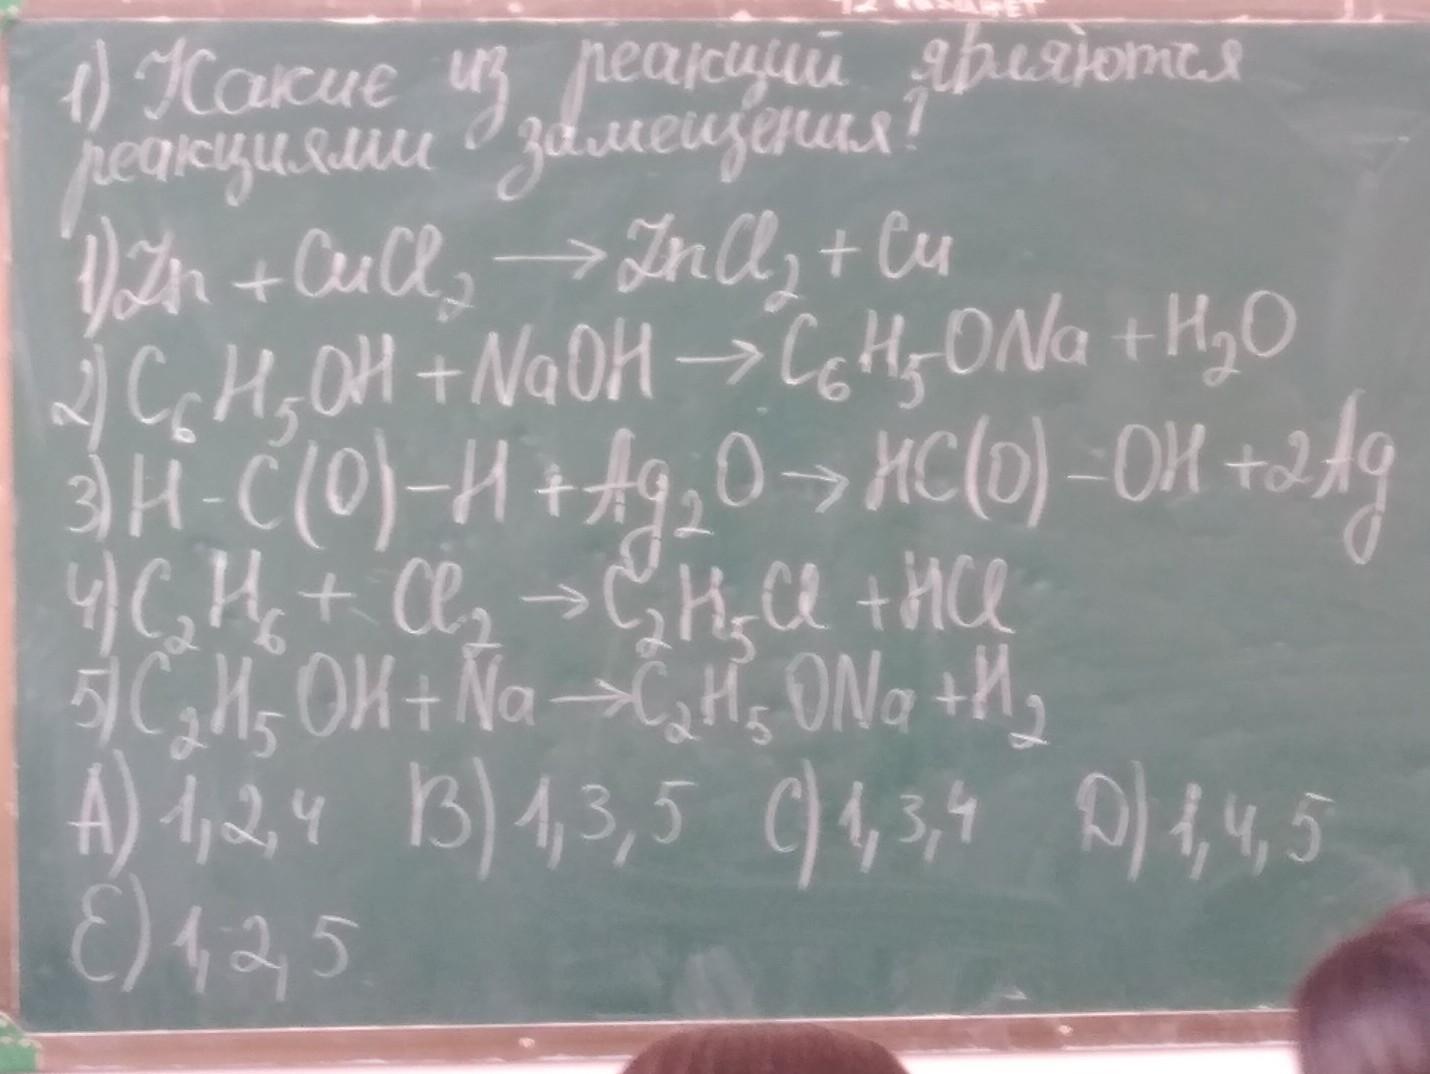 1) Какие из реакций являются
реакциями замещения?
1) Zn + CuCl₂ → ZnCl₂ + Cu
2) C₆H₅OH + NaOH → C₆H₅ONa + H₂O
3) H-C(O)-H + Ag₂O → HC(O)-OH + 2Ag
4) C₂H₆ + Cl₂ → C₂H₅Cl + HCl
5) C₂H₅OH + Na → C₂H₅ONa + H₂
A) 1,2,4 B) 1,3,5 C) 1,3,4 D) 1,4,5
E) 1,2,5